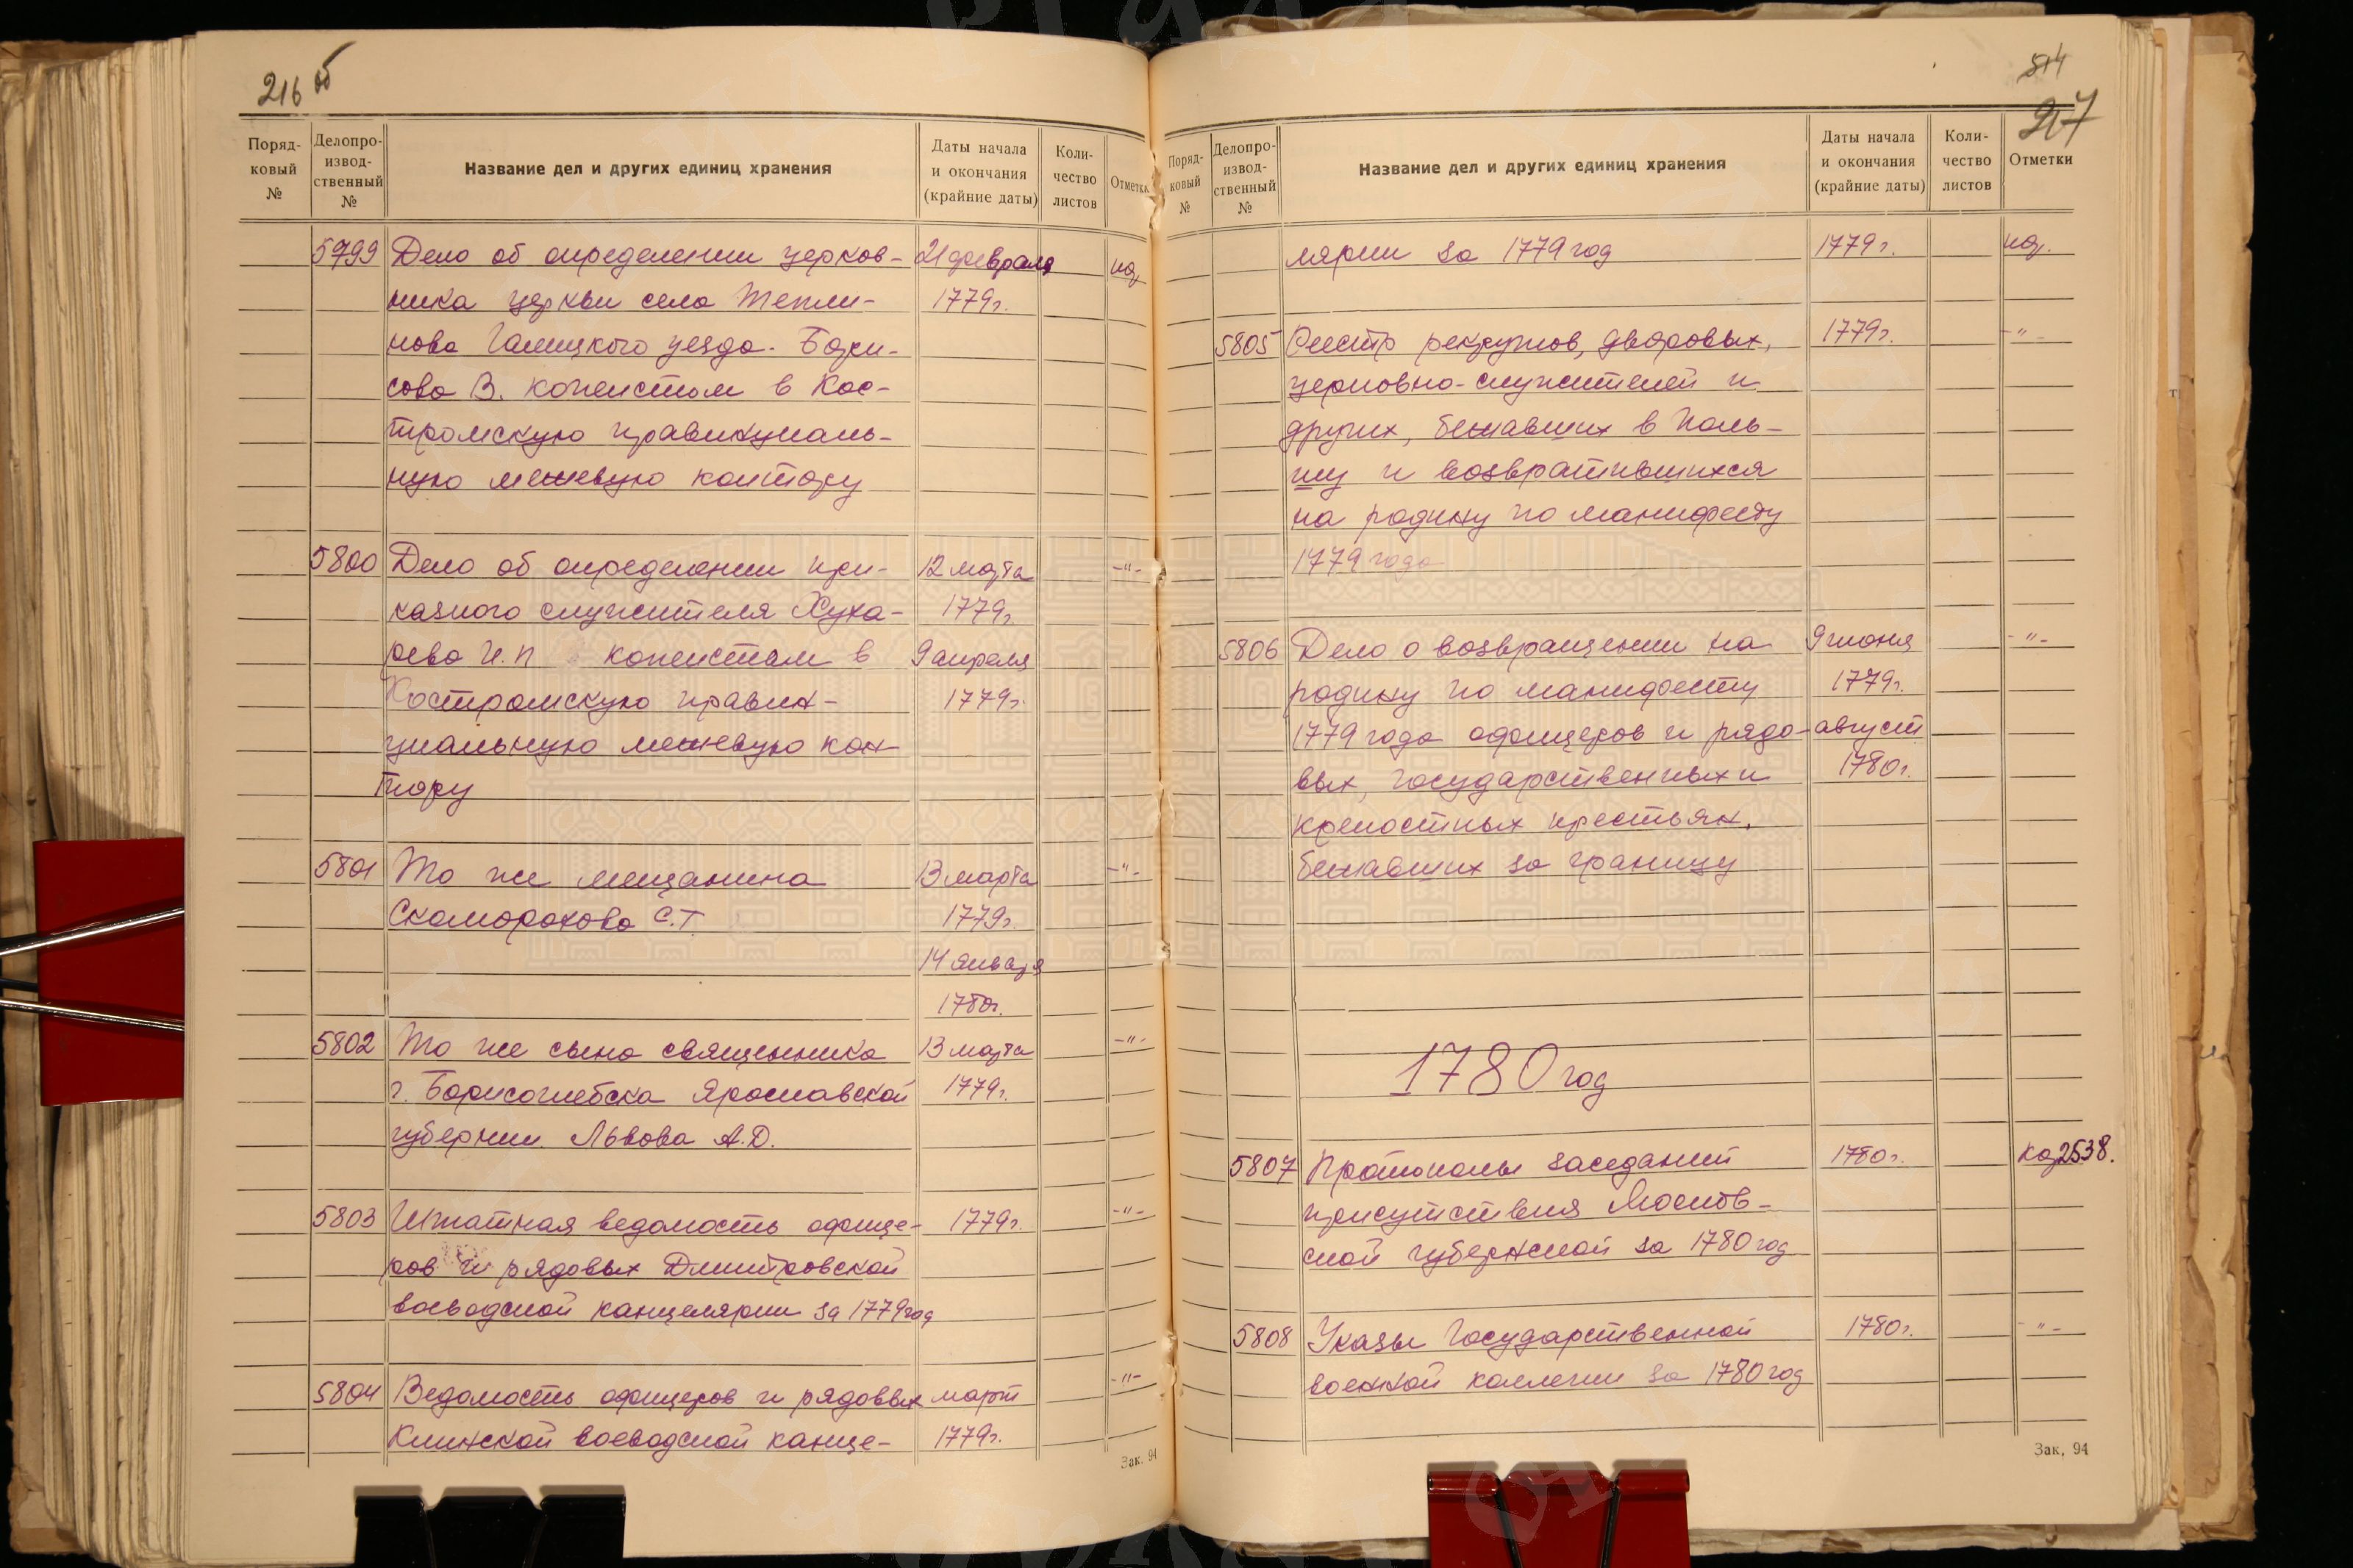 216 об
Поряд-
ковый
№
Делопро-
извод-
ственный
№
Название дел и других единиц хранения
Даты начала
и окончания
(крайние даты)
Коли-
чество
листов
Отметки
5799 Дело об определении церков- 21 февраля
ника церкви села Тепли- 1779г.
нова Галицкого уезда Бори-
сова В. копеистом в Кос-
тромскую правинциаль-
ную межевую контору
5800 Дело об определении при- 12 марта -"-
казного служителя Хуха- 1779г.
рева И.П копеистом в 9 апреля
Костромскую правин- 1779г.
циальную межевую кон-
тору
5801 То же мещанина 13 марта -"-
Скоморохова С.Т 1779г.
14 января
1780г.
5802 То же сына священника 13 марта -"-
г. Борисоглебска Ярославской 1779г.
губернии Львова А.Д.
5803 Штатная ведомость офице- 1779г. -"-
ров и рядовых Дмитровской
воеводской канцелярии за 1779год
5804 Ведомость офицеров и рядовых март -"-
Клинской воеводской канце- 1779г.
Зак. 94
514
217
Поряд-
ковый
№
Делопро-
извод-
ственный
№
Название дел и других единиц хранения
Даты начала
и окончания
(крайние даты)
Коли-
чество
листов
Отметки
лярии за 1779 год 1779г.
5805 Реестр рекрутов, дворовых, 1779г. -"-
церковно-служителей и
других, бежавших в Поль-
шу и возвратившихся
на родину по манифесту
1779 года
5806 Дело о возвращении на 9 июня -"-
родину по манифесту 1779г.
1779 года офицеров и рядо- август
вых, государственных и 1780г.
крепостных крестьян,
бежавших за границу
1780 год
5807 Протоколы заседаний 1780г. 2538.
присутствия Москов-
ской губернской за 1780 год
5808 Указы Государственной 1780г. -"-
военной коллегии за 1780 год
Зак. 94